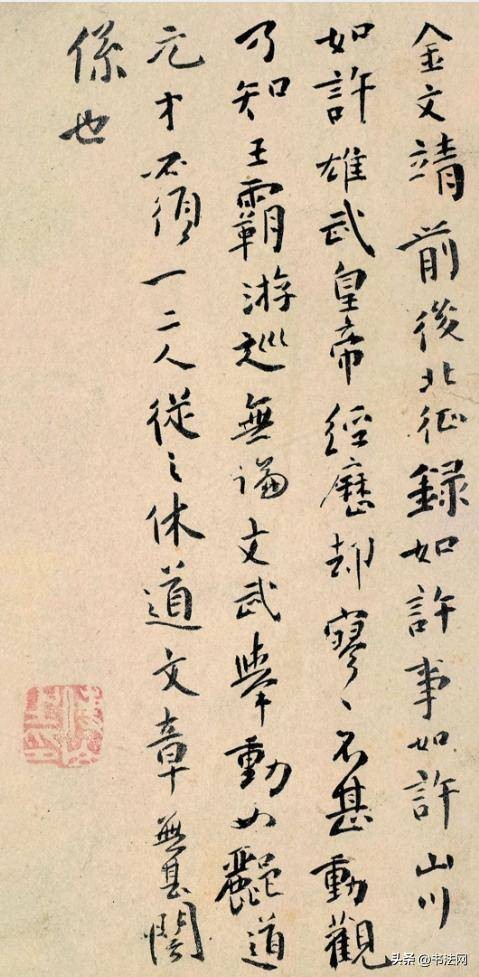 金文靖前後北征録如許事如許山川
如許雄武皇帝經歷却寥〻不甚動觀
乃知王霸游巡無論文武舉動如酈道
元才不須一二人從之休道文章無甚關
係也
头条 @书法网